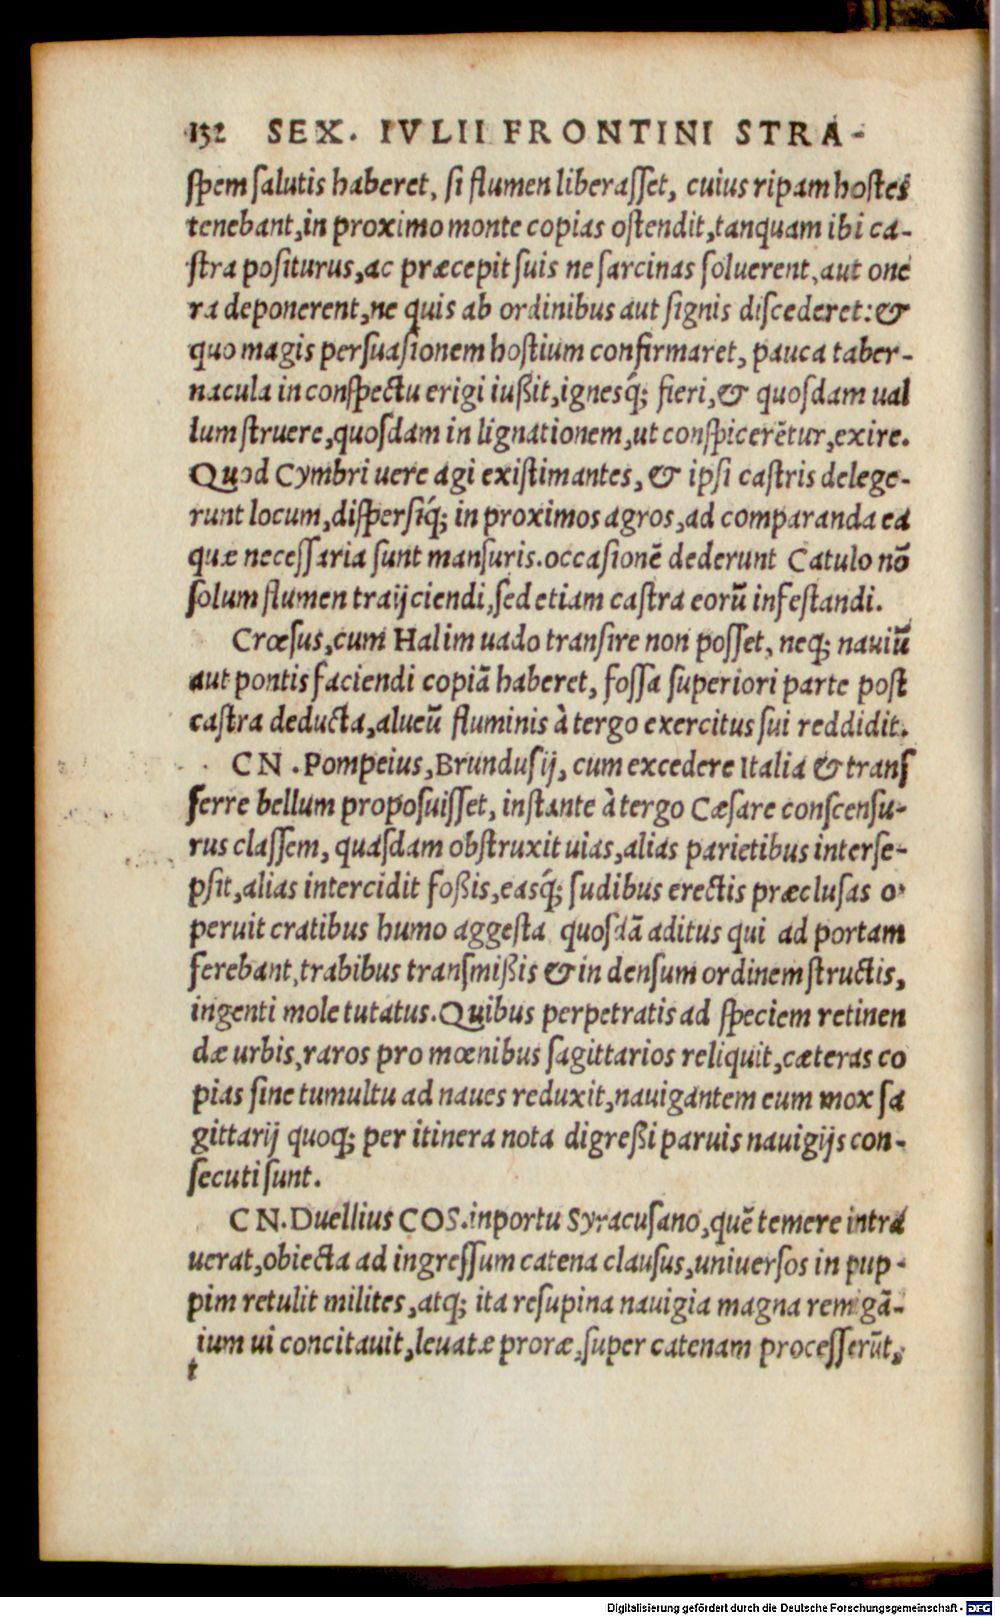 132 SEX. IVLII FRONTINI STRA-
ſpem ſalutis haberet, ſi flumen liberaſſet, cuius ripam hoſtes
tenebant, in proximo monte copias oſtendit, tanquam ibi ca-
ſtra poſiturus, ac præcepit ſuis ne ſarcinas ſoluerent, aut one
ra deponerent, ne quis ab ordinibus aut ſignis diſcederet: &
quo magis perſuaſionem hoſtium confirmaret, pauca taber-
nacula in conſpectu erigi iußit, ignesq́; fieri, & quoſdam ual
lum ſtruere, quoſdam in lignationem, ut conſpicerẽtur, exire.
Quod Cymbri uere agi exiſtimantes, & ipſi caſtris delege-
runt locum, diſperſiq́; in proximos agros, ad comparanda ea
quæ neceſſaria ſunt manſuris. occaſionẽ dederunt Catulo nõ
ſolum flumen traijciendi, ſed etiam caſtra eorũ infeſtandi.
Crœſus, cum Halim uado tranſire non poſſet, neq; nauiũ
aut pontis faciendi copiã haberet, foſſa ſuperiori parte poſt
caſtra deducta, alueũ fluminis à tergo exercitus ſui reddidit.
CN. Pompeius, Brunduſij, cum excedere Italia & tranſ
ferre bellum propoſuiſſet, inſtante à tergo Cæſare conſcenſu-
rus claſſem, quaſdam obſtruxit uias, alias parietibus interſe-
pſit, alias intercidit foßis, easq́; ſudibus erectis præcluſas o-
peruit cratibus humo aggeſta quoſdã aditus qui ad portam
ferebant, trabibus tranſmißis & in denſum ordinem ſtructis,
ingenti mole tutatus. Quibus perpetratis ad ſpeciem retinen
dæ urbis, raros pro mœnibus ſagittarios reliquit, cæteras co
pias ſine tumultu ad naues reduxit, nauigantem eum mox ſa
gittarij quoq; per itinera nota digreßi paruis nauigijs con-
ſecuti ſunt.
CN. Duellius COS. in portu Syracuſano, quẽ temere intra
uerat, obiecta ad ingreſſum catena clauſus, uniuerſos in pup-
pim retulit milites, atq; ita reſupina nauigia magna remigã-
tium ui concitauit, leuatæ proræ, ſuper catenam proceſſerũt,
Digitalisierung gefördert durch die Deutsche Forschungsgemeinschaft - DFG